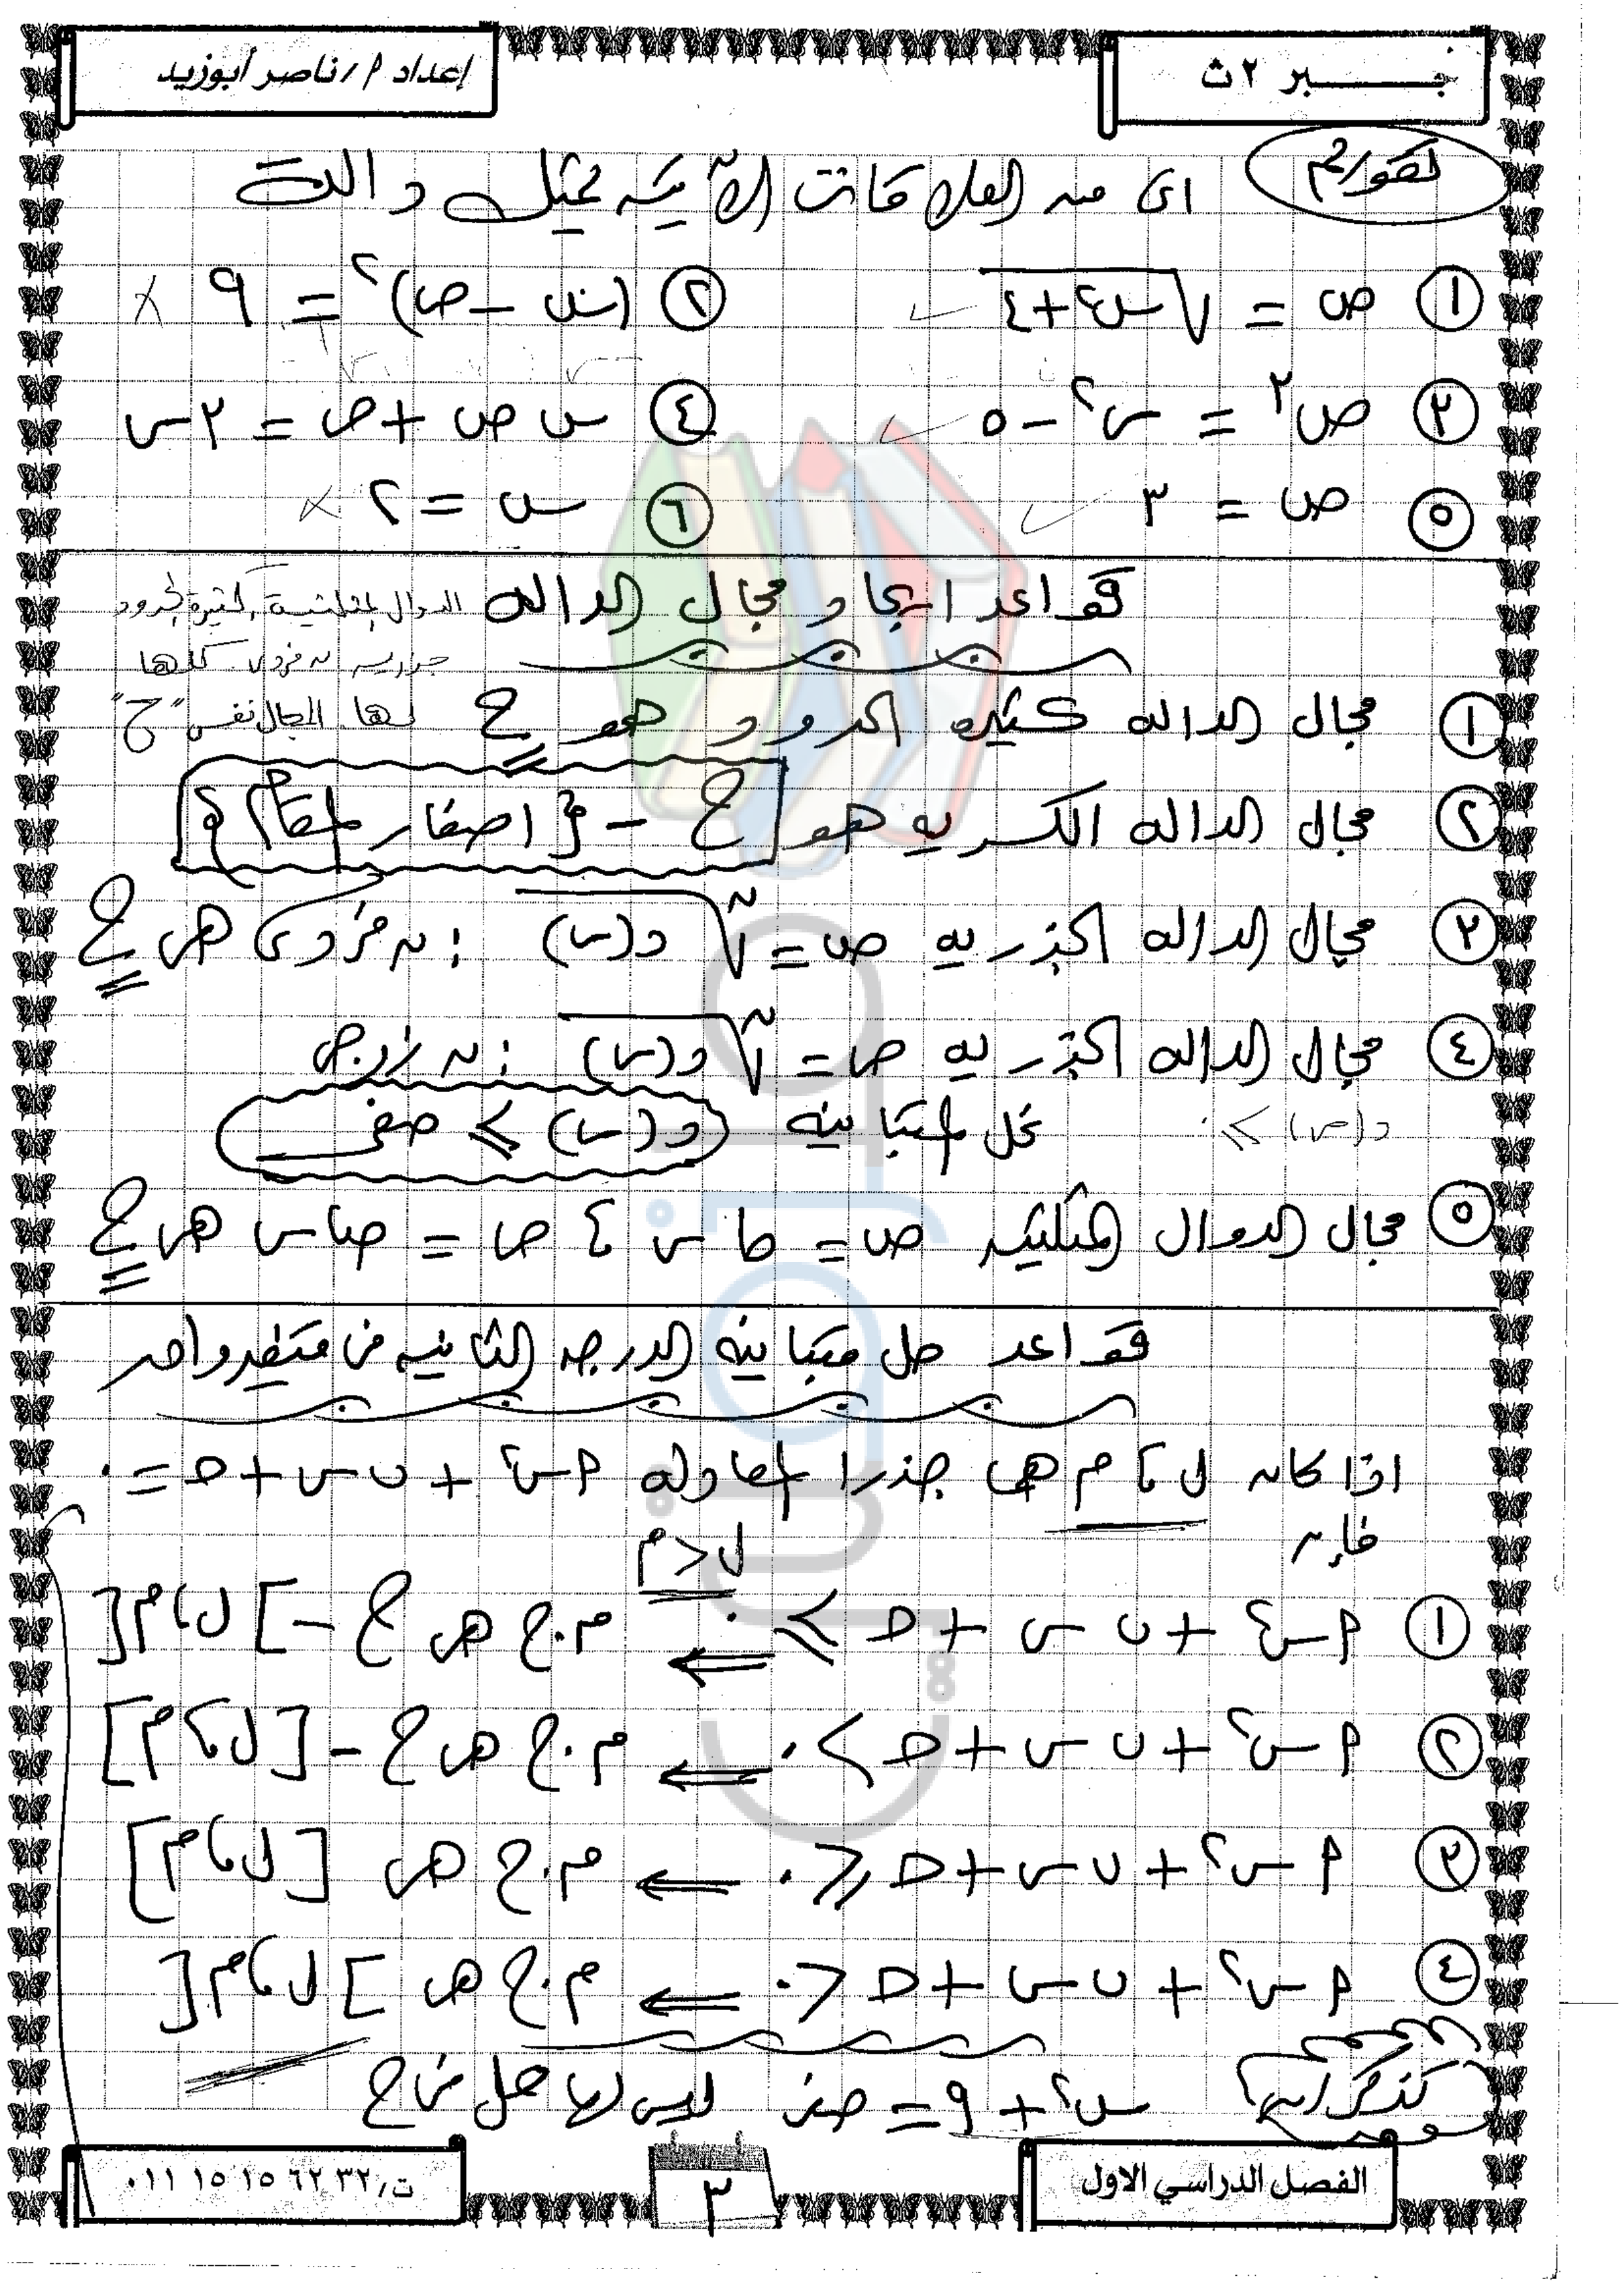 جـــبر ٢ث
إعداد م/ناصر أبوزيد
اى من العلاقات الآتيه تمثل دالة
① ص = √(س² + ٤) ✓
② (س - ص)² = ٩ ✗
③ ص³ = س² - ٥ ✓
④ س ص + ص = ٣ س
⑤ ص = ٣ ✓
⑥ س = ٢ ✗
قواعد ايجاد مجال الداله
الدوال المثلثية، كثيرة الحدود
جذريه ن فردى كلها
لها المجال نفسه "ح"
① مجال الداله كثيره الحدود هو ح
② مجال الداله الكسريه هو ح - {اصفار المقام}
③ مجال الداله الجذريه ص = ⁿ√د(س) : ن فردى هى ح
④ مجال الداله الجذريه ص = ⁿ√د(س) : ن زوجى
نحل المتباينه د(س) ≥ صفر
د(س) ≥ ٠
⑤ مجال الدوال المثلثيه ص = حا س ، ص = حتا س هى ح
قواعد حل متباينه الدرجه الثانيه فى متغير واحد
اذا كان ل ، م هى جذرا المعادله أ س² + ب س + حـ = ٠
فإن ل < م
① أ س² + ب س + حـ ≥ ٠ ⇐ م.ح هى ح - ]ل ، م[
② أ س² + ب س + حـ > ٠ ⇐ م.ح هى ح - [ل ، م]
③ أ س² + ب س + حـ ≤ ٠ ⇐ م.ح هى [ل ، م]
④ أ س² + ب س + حـ < ٠ ⇐ م.ح هى ]ل ، م[
تذكر أن س² + ٩ = صفر ليس لها حل فى ح
الفصل الدراسي الاول
٣
ت/ ٠١١ ١٥ ١٥ ٦٢ ٣٢